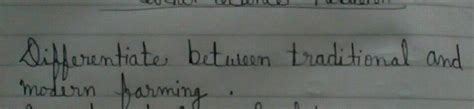 Differentiate between traditional and
modern farming.